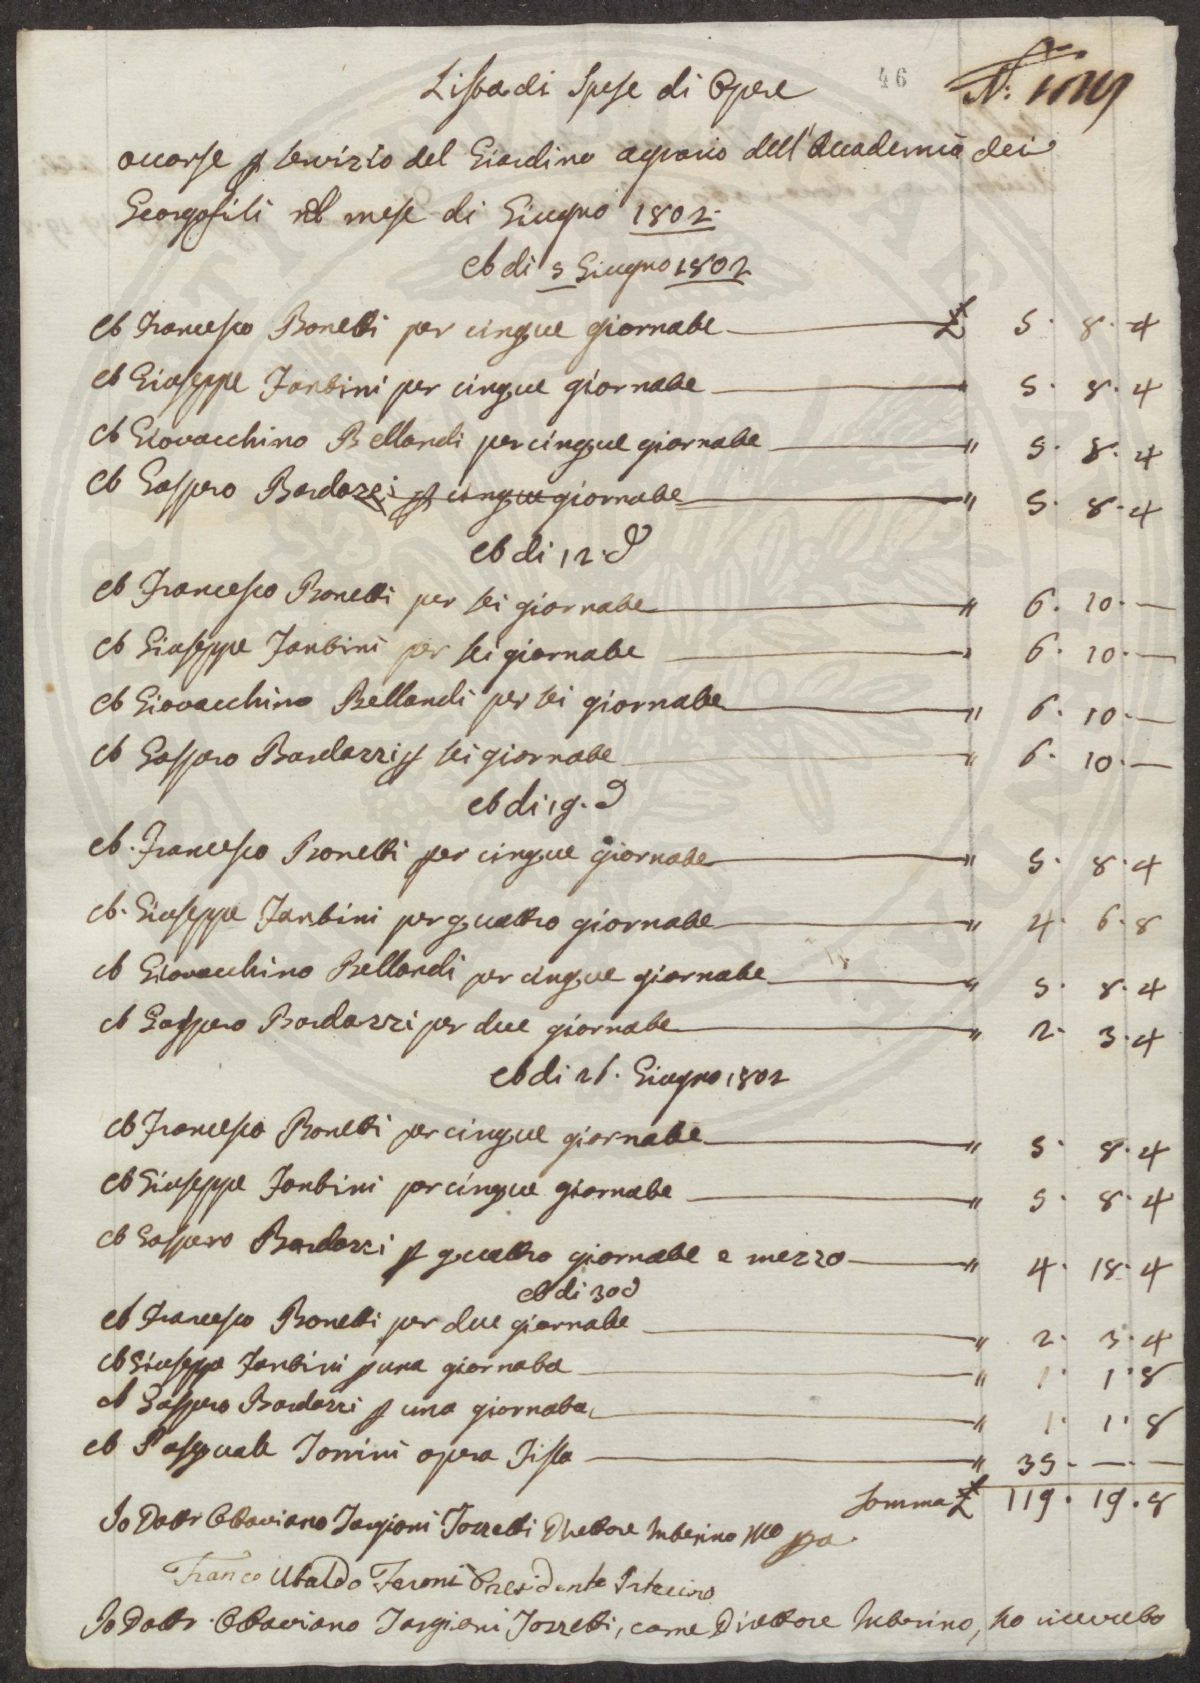 46
Lista di Spese di Opere
occorse p servizio del Giardino agrario dell'Accademia dei
Georgofili nel mese di Giugno 1802.
A di 5 Giugno 1802
A Francesco Bonetti per cinque giornate £ 5. 8. 4
A Giuseppe Fantini per cinque giornate 5. 8. 4
A Giovacchino Bellandi per cinque giornate " 5. 8. 4
A Gaspero Bardazzi p cinque giornate " 5. 8. 4
A di 12. d
A Francesco Bonetti per sei giornate " 6. 10. —
A Giuseppe Fantini per sei giornate " 6. 10. —
A Giovacchino Bellandi per sei giornate " 6. 10. —
A Gaspero Bardazzi p sei giornate " 6. 10. —
A di 19. d
A. Francesco Bonetti per cinque giornate " 5. 8. 4
A. Giuseppe Fantini per quattro giornate " 4. 6. 8
A Giovacchino Bellandi per cinque giornate " 5. 8. 4
A Gaspero Bardazzi per due giornate " 2. 3. 4
A di 26. Giugno 1802
A Francesco Bonetti per cinque giornate " 5. 8. 4
A Giuseppe Fantini per cinque giornate " 5. 8. 4
A Gaspero Bardazzi p quattro giornate e mezzo " 4. 18. 4
A di 30 d
A Francesco Bonetti per due giornate " 2. 3. 4
A Giuseppe Fantini p una giornata " 1. 1. 8
A Gaspero Bardazzi p una giornata " 1. 1. 8
A Pasquale Tonini opera Fissa " 35. — —
Somma £ 119. 19. 8
Io Dottr Ottaviano Targioni Tozzetti Direttore Interino
Franco Ubaldo Feroni Presidente Interino
Io Dottr. Ottaviano Targioni Tozzetti, come Direttore Interino, ho ricevuto